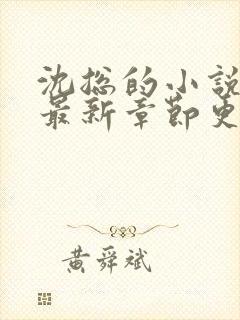 沈总的小說
最新章節更
黄舜斌